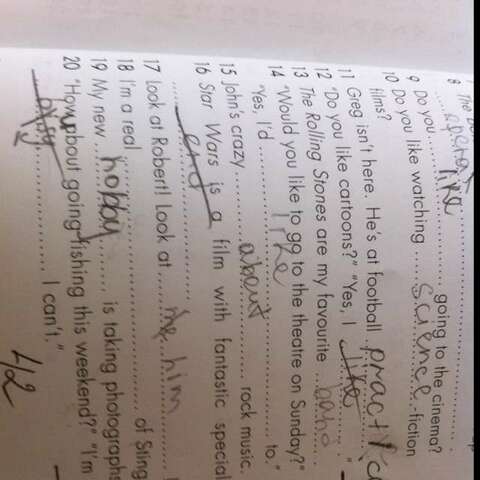 8
9 Do you like going to the cinema?
10 Do you like watching science-fiction
films?
11 Greg isn't here. He's at football practic
12 "Do you like cartoons?" "Yes, I like."
13 The Rolling Stones are my favourite band.
14 "Would you like to go to the theatre on Sunday?"
"Yes, I'd like to."
15 John's crazy about rock music.
16 Star Wars is a film with fantastic special
end
17 Look at Robert! Look at me him
18 I'm a real of Sting
19 My new hobby is taking photographs
20 "How about going fishing this weekend?" "I'm
I can't."
42